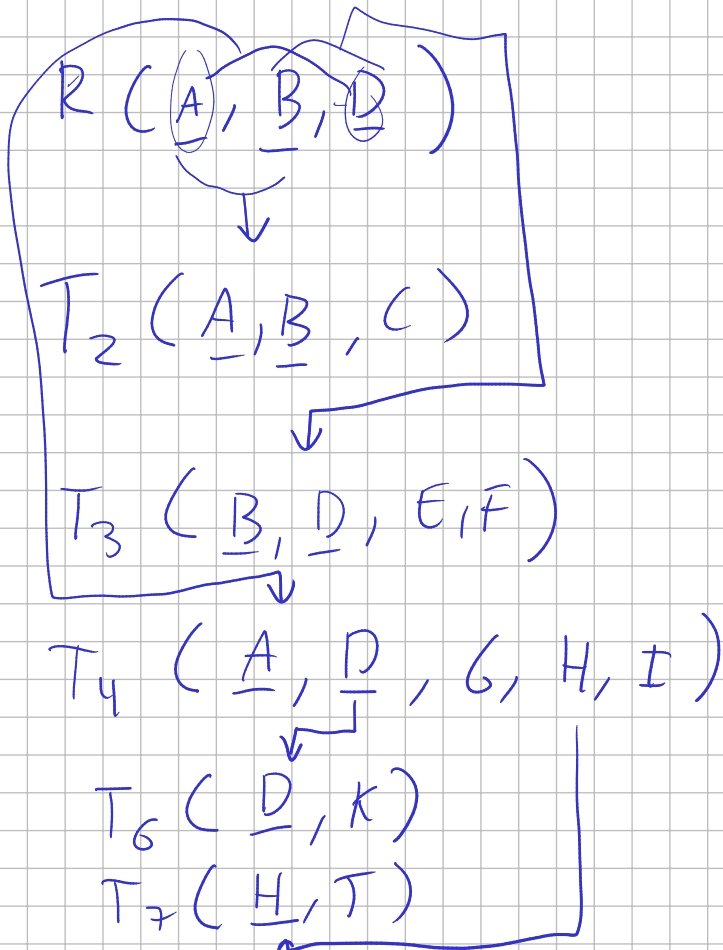 R ( A, B, D )
T2 ( A, B, C )
T3 ( B, D, E, F )
T4 ( A, D, G, H, I )
T6 ( D, K )
T7 ( H, T )